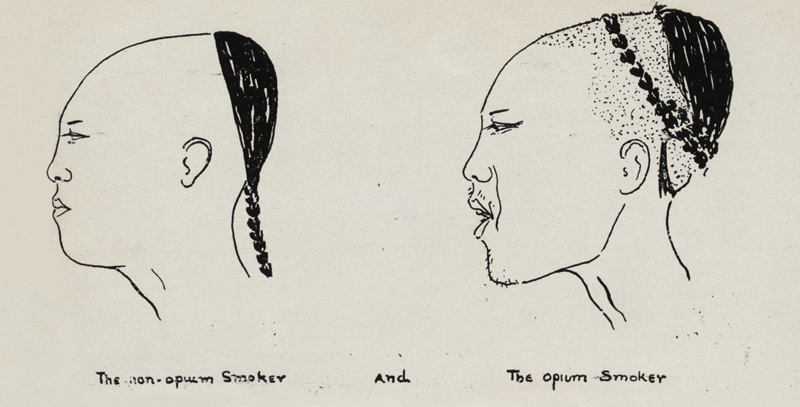 The non-opium Smoker And The opium Smoker